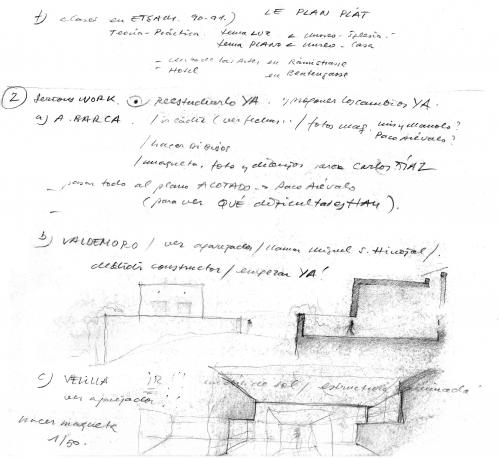 1) clases en ETSAM. 90-91.) LE PLAN PLAT
Teoría-Práctica. tema LUZ museo-Iglesia.
tema PLANO museo-Casa
Artes en Rämistrasse
- Hotel en
2) serious WORK. reestudiarlo YA. proponer los cambios YA.
a) A. BARCA. / incidir (ver fechas.. / fotos mag. mis y Manolo?
Paco Arévalo?
/ hacer DIBUJOS
/ maqueta, foto y dibujos para Carlos DÍAZ
- pasar todo al plano ACOTADO → Paco Arévalo
(para ver QUÉ dificultades HAY).
-
b) VALDEMORO / ver aparejador / llamar Miguel S. Hinojal /.
constructor / empezar YA!
c) VELILLA IR!! de sol / estructura
ver aparejador!
hacer maqueta
1/50.